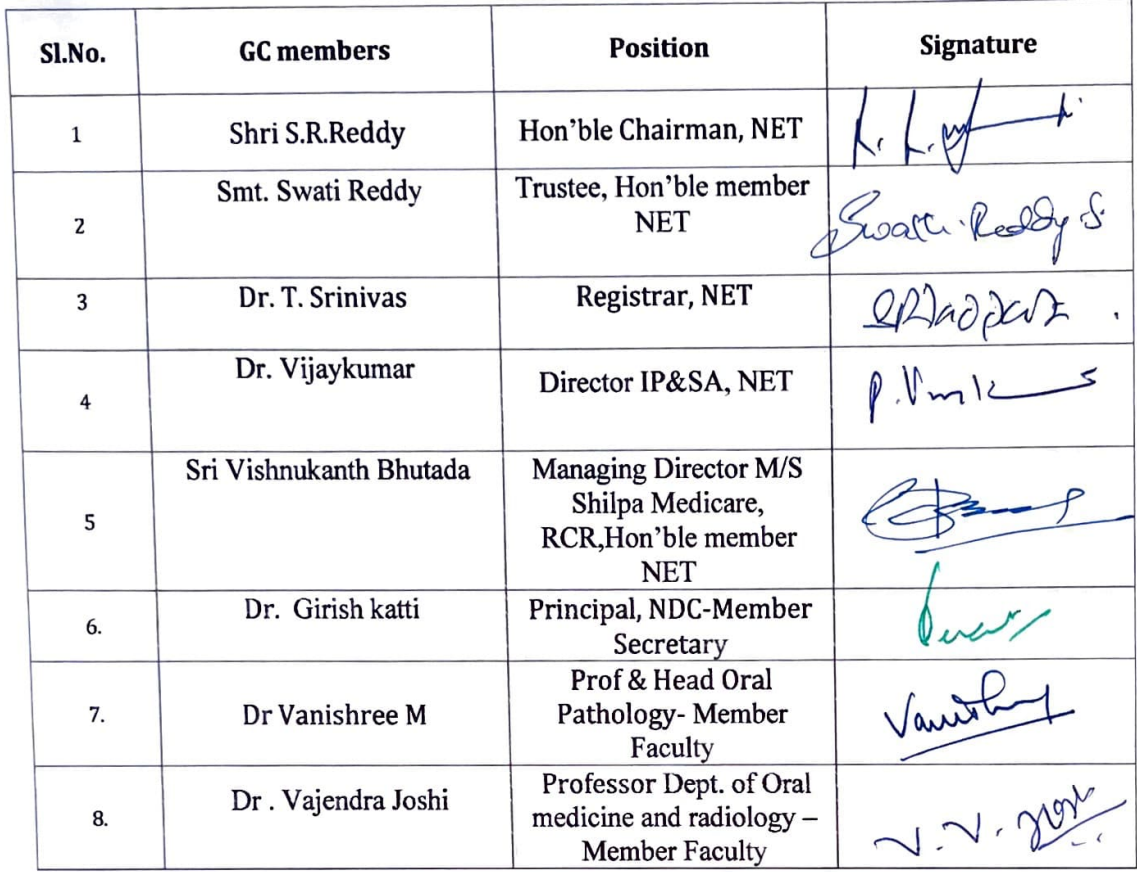 Sl.No. GC members Position Signature
1 Shri S.R.Reddy Hon'ble Chairman, NET
2 Smt. Swati Reddy Trustee, Hon'ble member
NET Swathi Reddy S
3 Dr. T. Srinivas Registrar, NET
4 Dr. Vijaykumar Director IP&SA, NET
5 Sri Vishnukanth Bhutada Managing Director M/S
Shilpa Medicare,
RCR,Hon'ble member
NET
6. Dr. Girish katti Principal, NDC-Member
Secretary
7. Dr Vanishree M Prof & Head Oral
Pathology- Member
Faculty
8. Dr . Vajendra Joshi Professor Dept. of Oral
medicine and radiology –
Member Faculty